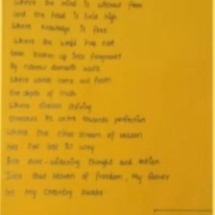 Where the mind is without fear
and the head is held high
Where knowledge is free
Where the world has not
been broken up into fragment
By narrow domestic walls
Where words come out from
the depth of truth
Where tireless striving
stretches its arms towards perfection
Where the clear stream of reason
Has not lost it way
ever-widening thought and action
Into that heaven of freedom, My father
let my country awake